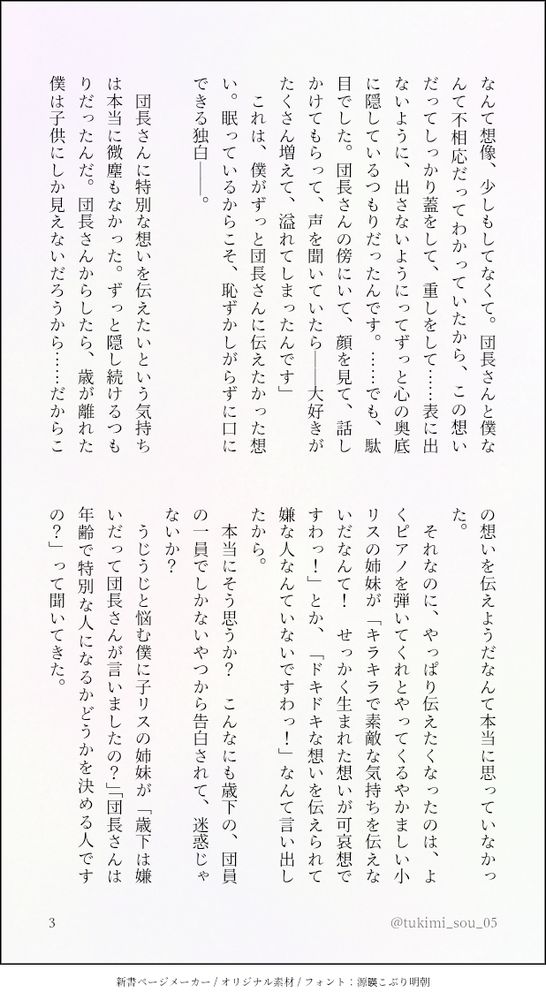 なんて想像、少しもしてなくて。団長さんと僕な
んて不相応だってわかっていたから、この想い
だってしっかり蓋をして、重しをして……表に出
ないように、出さないようにってずっと心の奥底
に隠しているつもりだったんです。……でも、駄
目でした。団長さんの傍にいて、顔を見て、話し
かけてもらって、声を聞いていたら――大好きが
たくさん増えて、溢れてしまったんです」
これは、僕がずっと団長さんに伝えたかった想
い。眠っているからこそ、恥ずかしがらずに口に
できる独白――。
団長さんに特別な想いを伝えたいという気持ち
は本当に微塵もなかった。ずっと隠し続けるつも
りだったんだ。団長さんからしたら、歳が離れた
僕は子供にしか見えないだろうから……だからこ
の想いを伝えようだなんて本当に思っていなかっ
た。
それなのに、やっぱり伝えたくなったのは、よ
くピアノを弾いてくれとやってくるやかましい小
リスの姉妹が「キラキラで素敵な気持ちを伝えな
いだなんて！　せっかく生まれた想いが可哀想で
すわっ！」とか、「ドキドキな想いを伝えられて
嫌な人なんていないですわっ！」なんて言い出し
たから。
本当にそう思うか？　こんなにも歳下の、団員
の一員でしかないやつから告白されて、迷惑じゃ
ないか？
うじうじと悩む僕に子リスの姉妹が「歳下は嫌
いだって団長さんが言いましたの？」「団長さんは
年齢で特別な人になるかどうかを決める人です
の？」って聞いてきた。
3
@tukimi_sou_05
新書ページメーカー / オリジナル素材 / フォント：源暎こぶり明朝